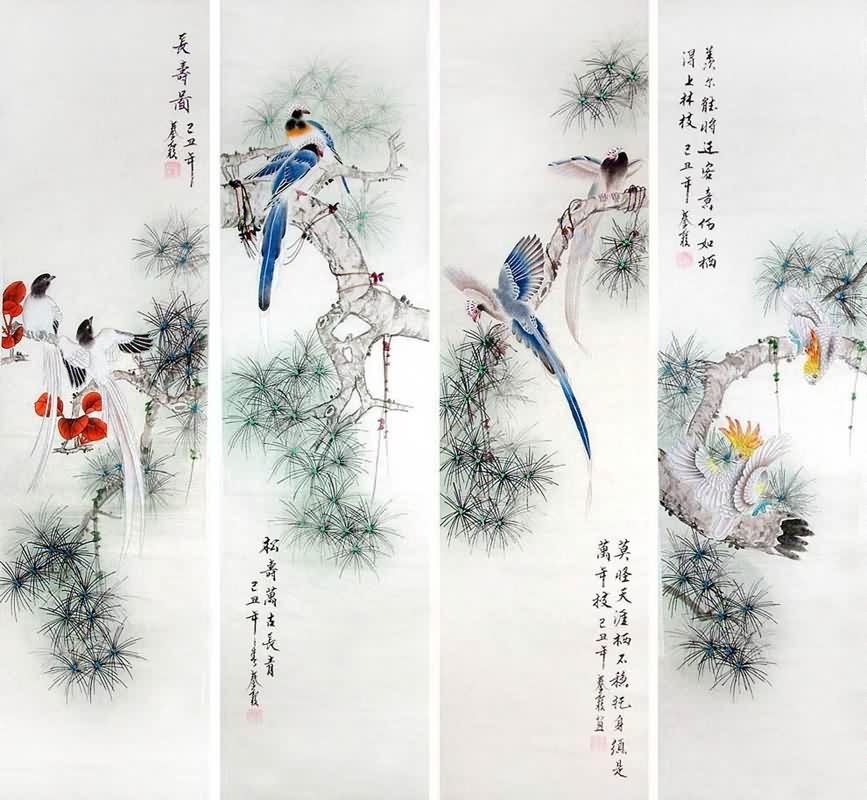 長壽圖
己丑年
松壽萬古長青
己丑年春
莫怪天涯栖不穩托身須是
萬年枝己丑年
羨尔能將迁客意如栖
得上林枝己丑年